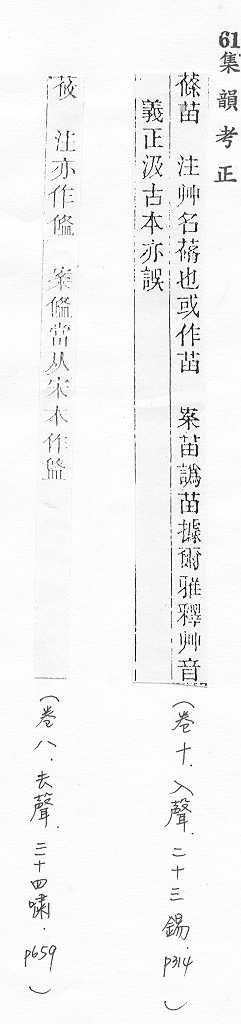 61
集韻考正
蓧苖 注艸名蓨也或作苖 案苗譌苖據爾雅釋艸音
義正汲古本亦誤
(卷十.入聲.二十三錫.p314)
莜 注亦作
案
當从宋本作
(卷八.去聲.三十四嘯.p659)